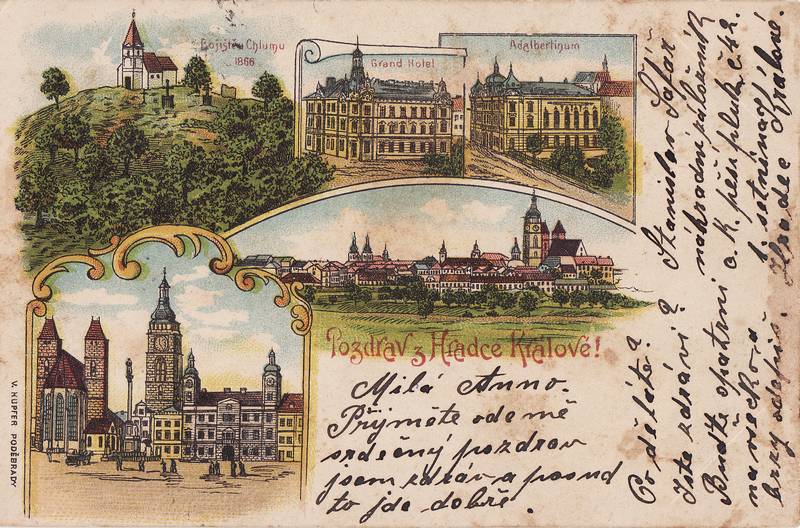 Bojiště u Chlumu
1866
Grand Hotel
Adalbertinum
Pozdrav z Hradce Králové!
V. KÜPFER PODĚBRADY
Milá Anno.
Přijměte ode mě
srdečný pozdrav
jsem zdráv a posud
to jde dobře.
Co děláte?
Jste zdrávi?
Buďte opatrni
na všecko a
brzy odepiš.
Stanislav
náhradní záložník
c. k. pěší pluk č. 42.
1. setnina
Hradec Králové.